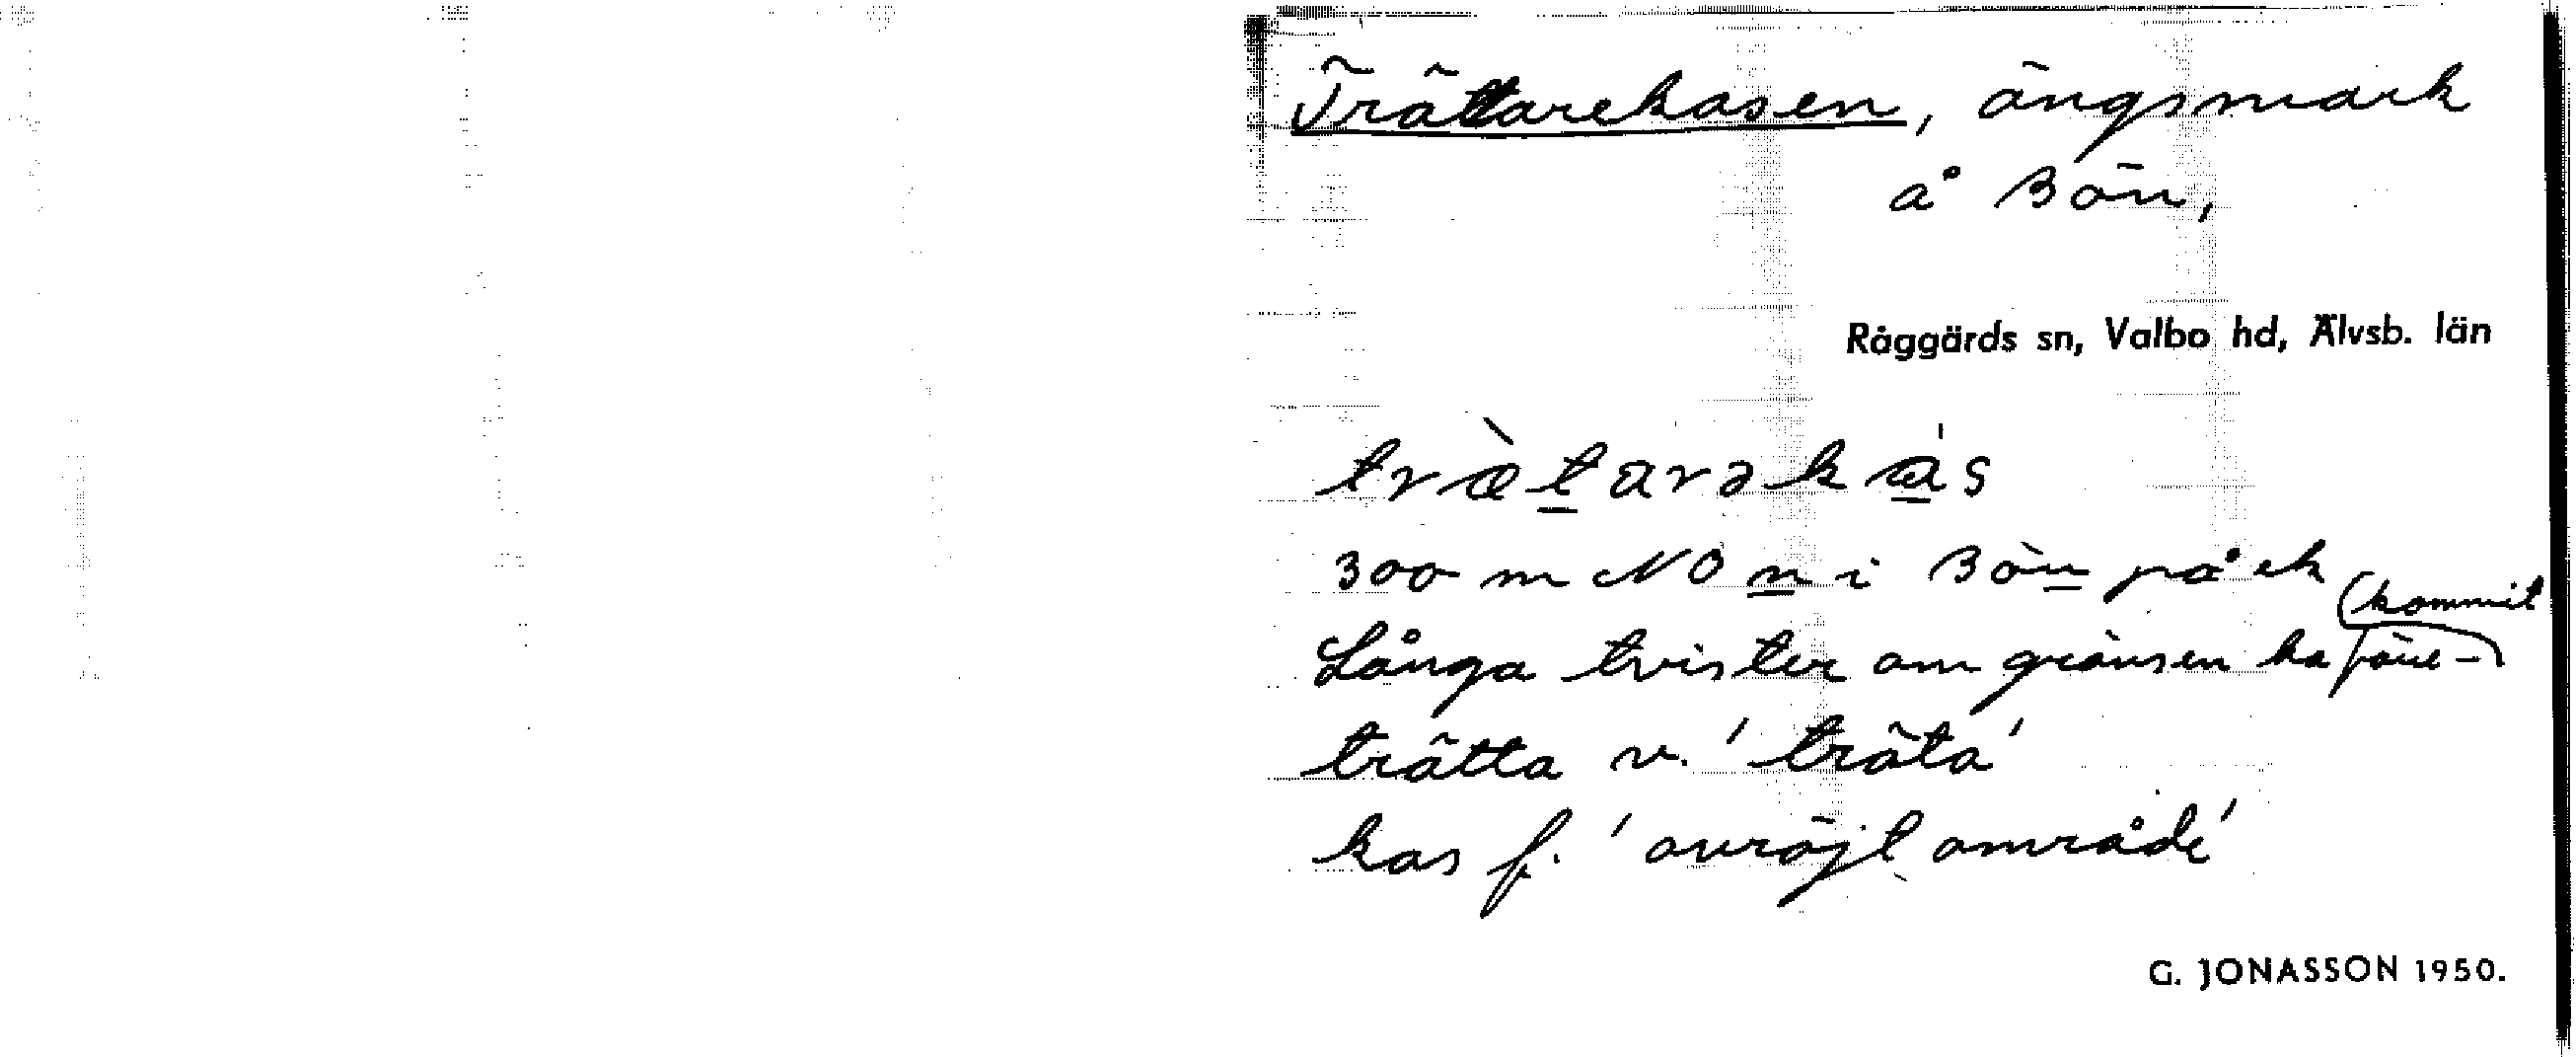 Trättarekasen, ängsmark
å Bön,
Råggärds sn, Valbo hd, Älvsb. län
træ̀tarəkás
300 m NO n i Bön på ek
Långa tvister om gränsen ha före-
(kommit
trätta v. 'träta'
kas f. 'avröjt område'
G. JONASSON 1950.